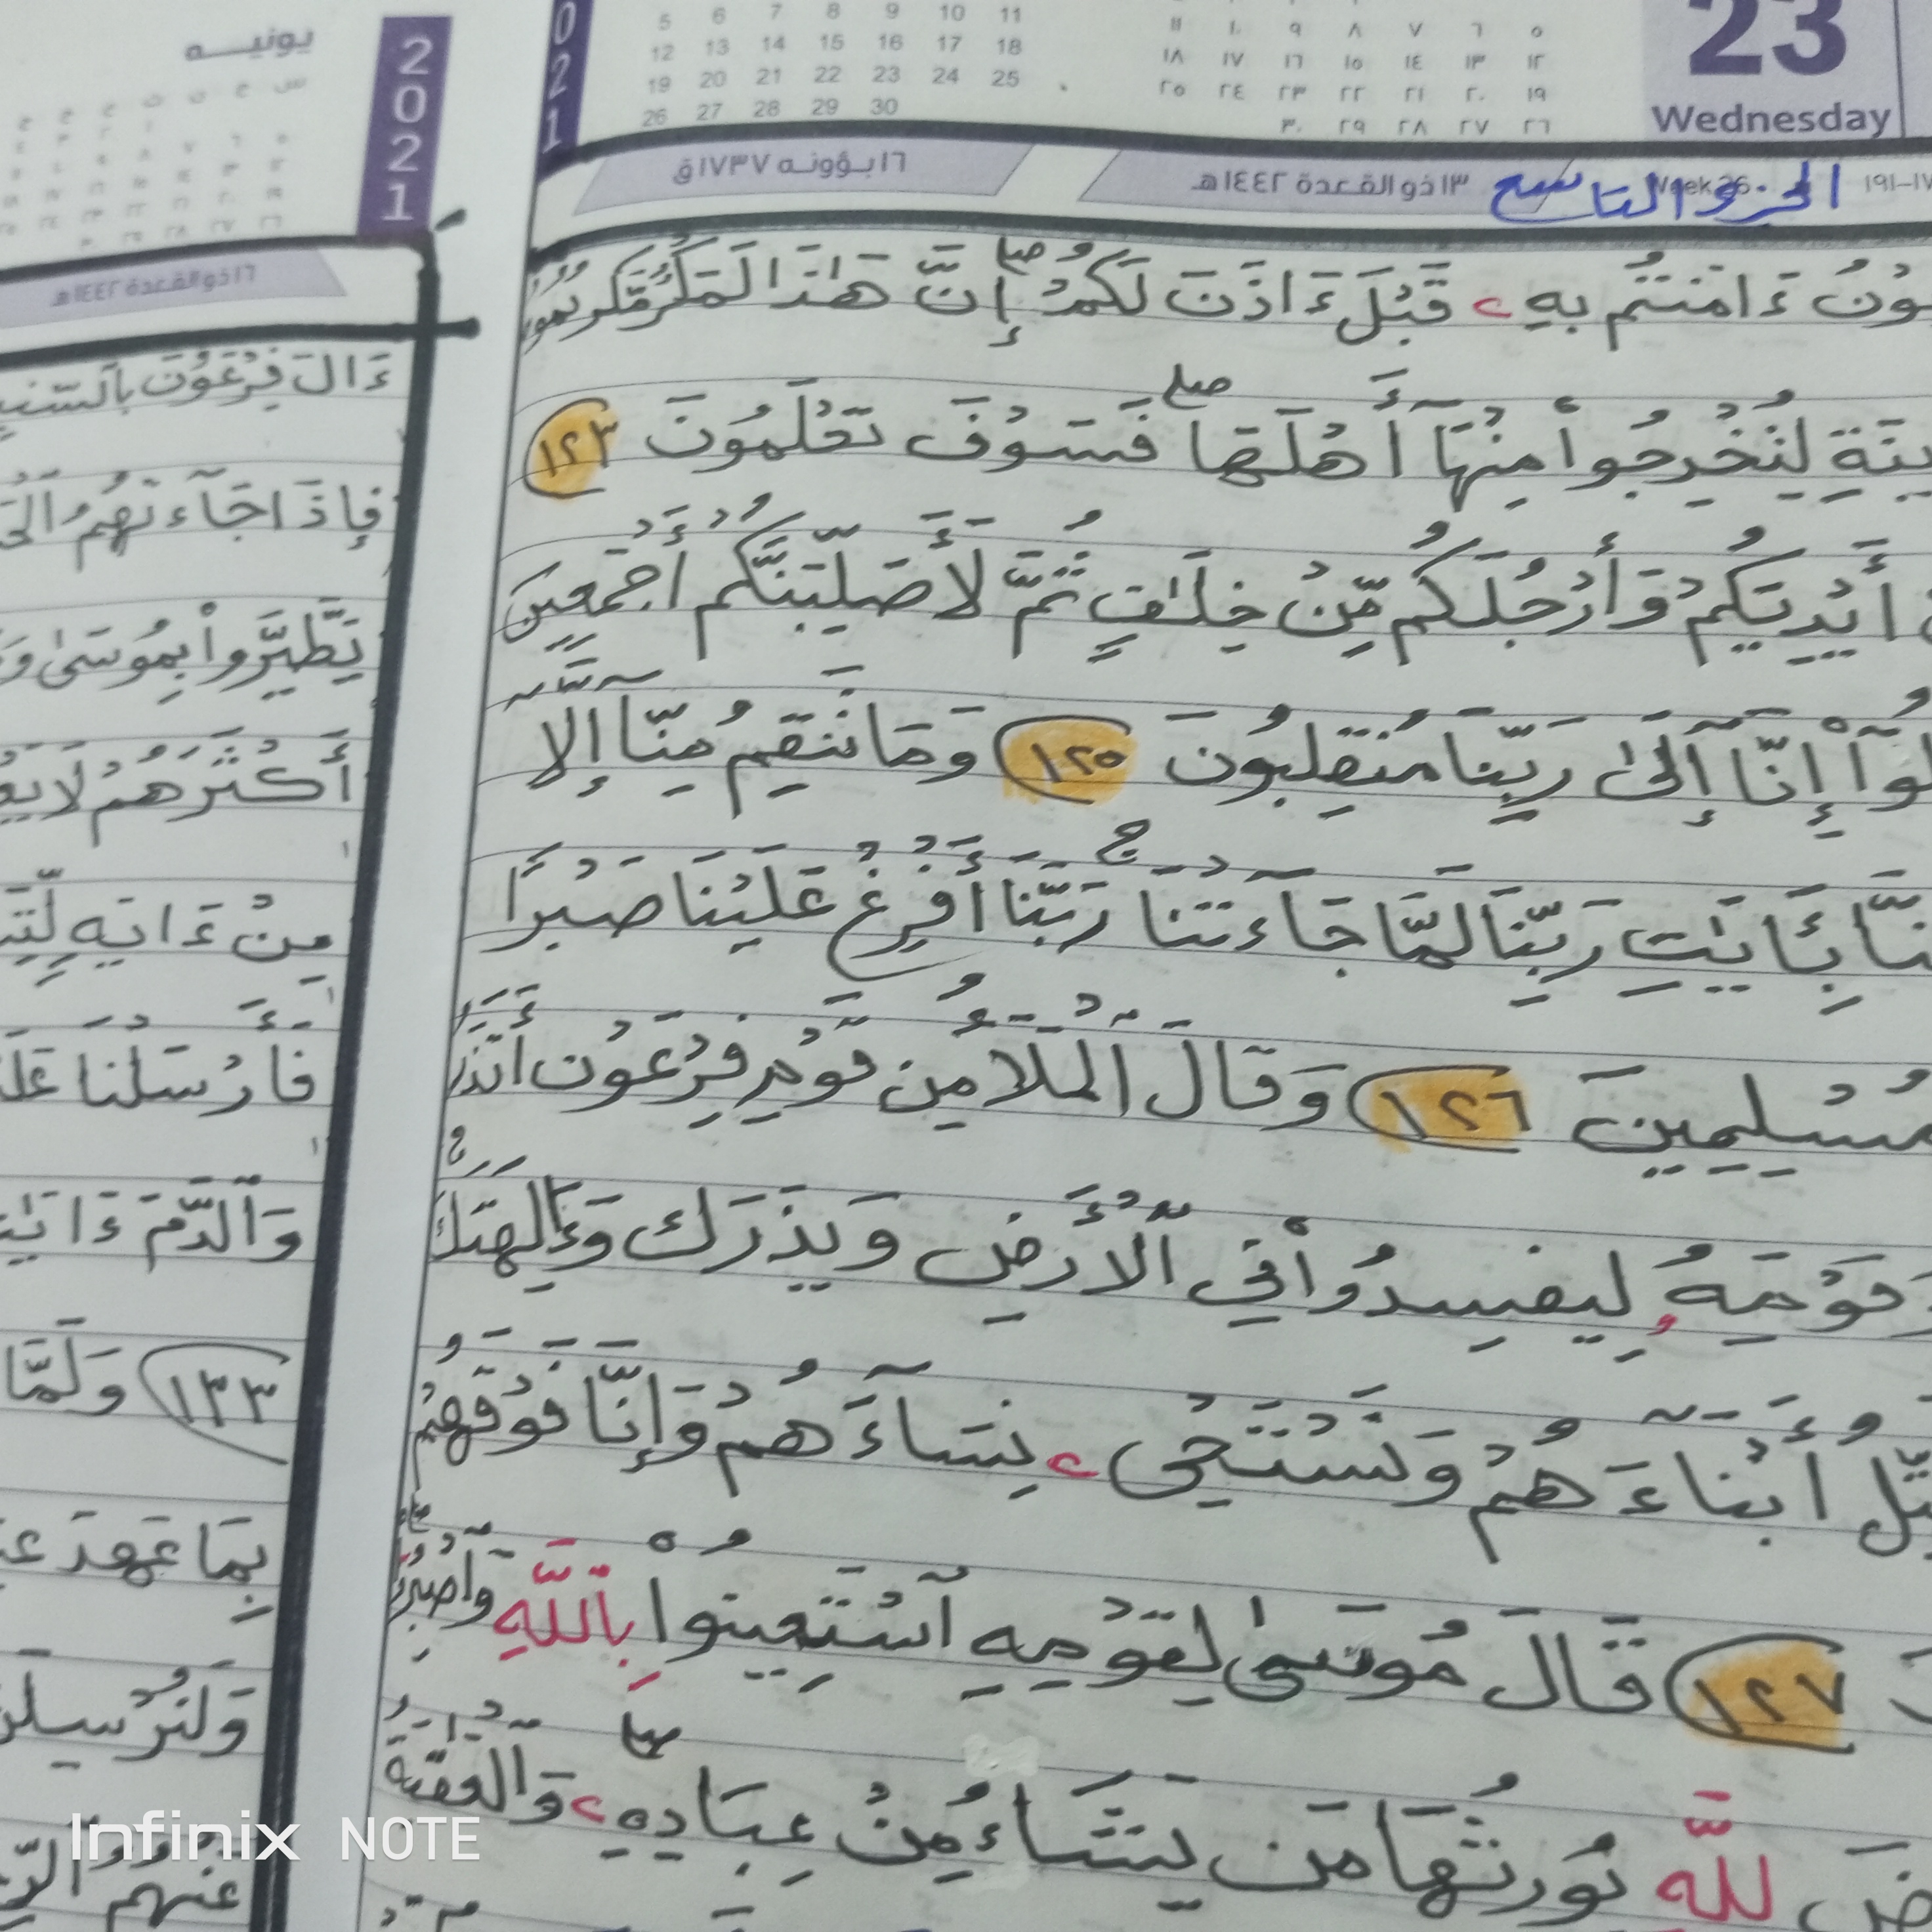 23
Wednesday
5 6 7 8 9 10 11
12 13 14 15 16 17 18
19 20 21 22 23 24 25
26 27 28 29 30
٥ ٦ ٧ ٨ ٩ ١٠ ١١
١٢ ١٣ ١٤ ١٥ ١٦ ١٧ ١٨
١٩ ٢٠ ٢١ ٢٢ ٢٣ ٢٤ ٢٥
٢٦ ٢٧ ٢٨ ٢٩ ٣٠
الجزء التاسع
١٣ ذو القعدة ١٤٤٢هـ
١٦ بؤونه ١٧٣٧ق
ءَامَنتُم بِهِۦ قَبْلَ ءَاذَنَ لَكُمْ ۖ إِنَّ هَٰذَا لَمَكْرٌ مَّكَرْتُمُوهُ
لِتُخْرِجُوا۟ مِنْهَآ أَهْلَهَا ۖ فَسَوْفَ تَعْلَمُونَ ١٢٣
أَيْدِيَكُمْ وَأَرْجُلَكُم مِّنْ خِلَٰفٍ ثُمَّ لَأُصَلِّبَنَّكُمْ أَجْمَعِينَ
إِنَّآ إِلَىٰ رَبِّنَا مُنقَلِبُونَ ١٢٥ وَمَا تَنقِمُ مِنَّآ إِلَّآ
بِـَٔايَٰتِ رَبِّنَا لَمَّا جَآءَتْنَا ۚ رَبَّنَآ أَفْرِغْ عَلَيْنَا صَبْرًا
مُسْلِمِينَ ١٢٦ وَقَالَ الْمَلَأُ مِن قَوْمِ فِرْعَوْنَ أَتَذَرُ
وَقَوْمَهُۥ لِيُفْسِدُوا۟ فِي ٱلْأَرْضِ وَيَذَرَكَ وَءَالِهَتَكَ ۚ
أَبْنَآءَهُمْ وَنَسْتَحْىِۦ نِسَآءَهُمْ وَإِنَّا فَوْقَهُمْ
١٢٧ قَالَ مُوسَىٰ لِقَوْمِهِ ٱسْتَعِينُوا۟ بِٱللَّهِ وَٱصْبِرُوٓا۟
لِلَّهِ يُورِثُهَا مَن يَشَآءُ مِنْ عِبَادِهِۦ ۖ وَٱلْعَٰقِبَةُ
2021
يونيه
2021
١٦ ذو القعدة ١٤٤٢هـ
ءَالَ فِرْعَوْنَ
فَإِذَا جَآءَتْهُمُ
يَطَّيَّرُوا۟ بِمُوسَىٰ
أَكْثَرَهُمْ لَا
مِنْ ءَايَةٍ
فَأَرْسَلْنَا
وَٱلدَّمَ
١٣٣ وَلَمَّا
بِمَا عَهِدَ
وَلَنُرْسِلَنَّ
عَنْهُمُ
Infinix NOTE